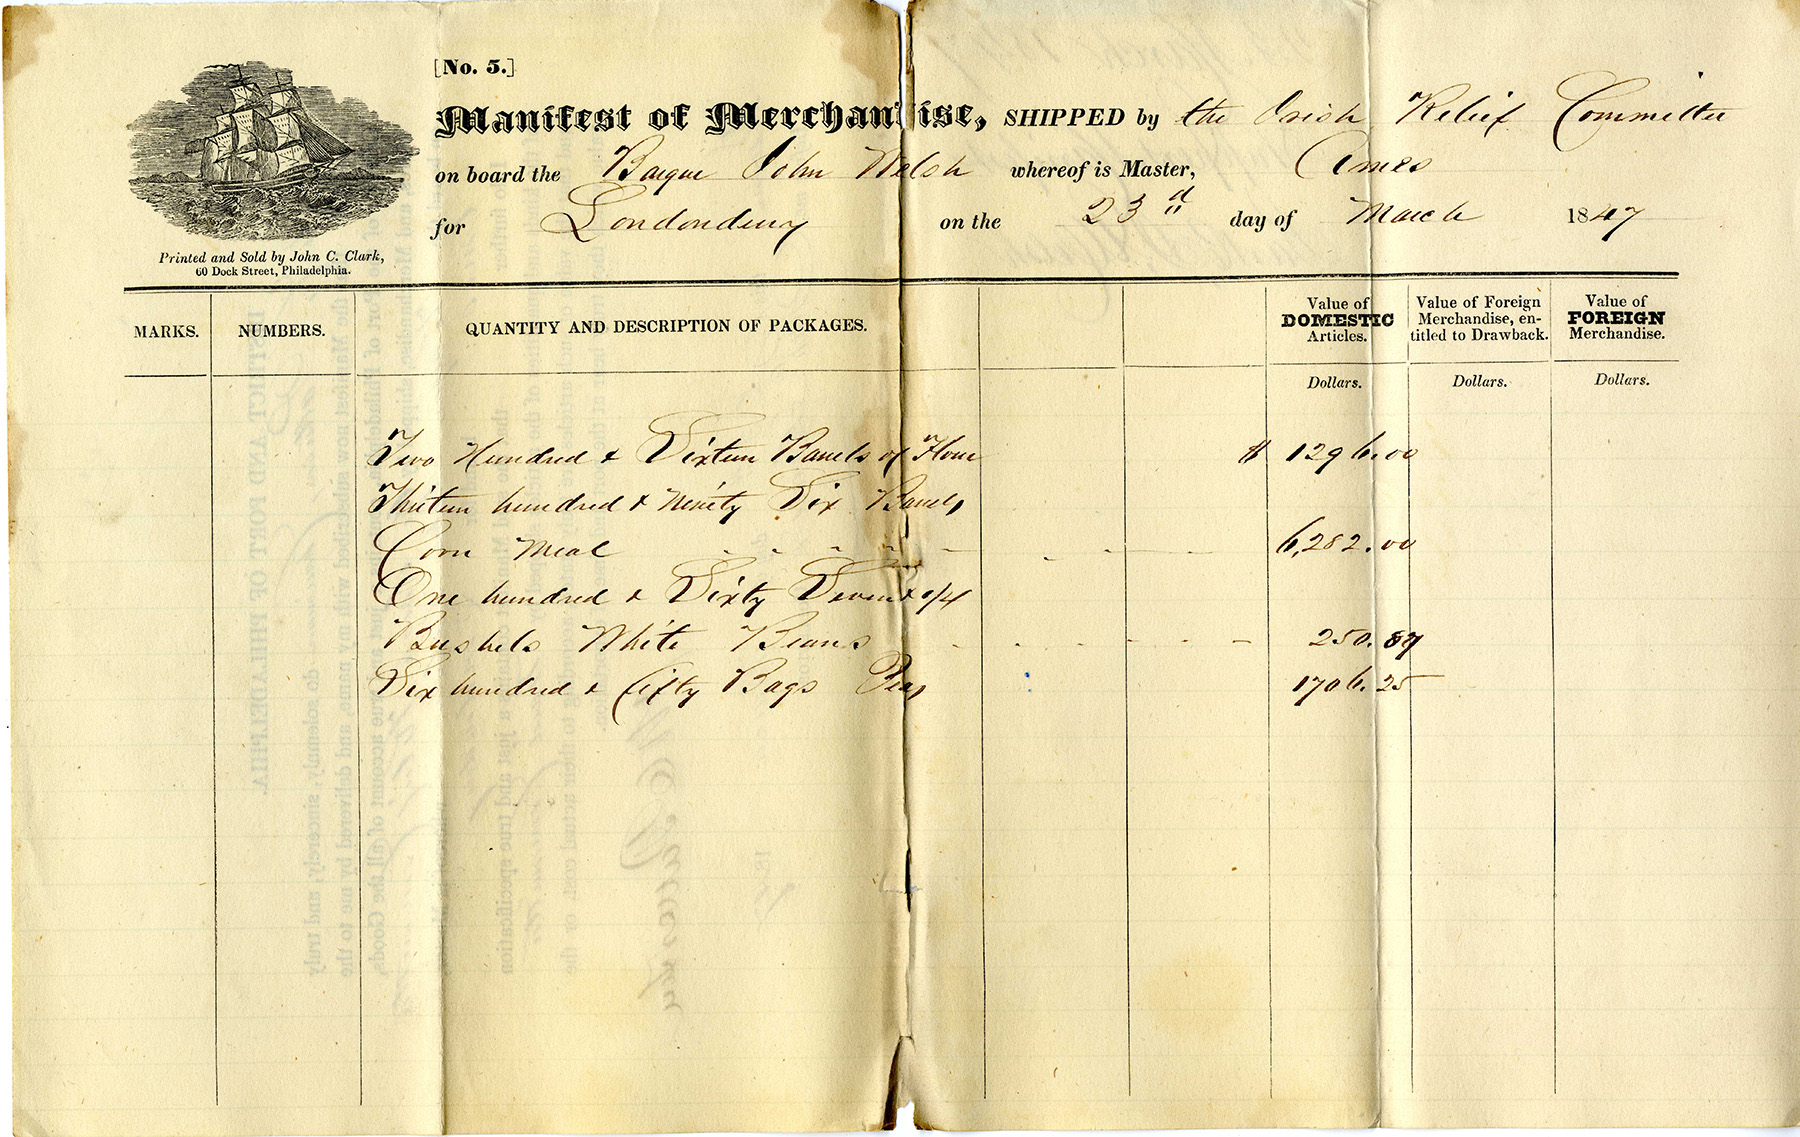 [No. 5.]
Manifest of Merchandise, SHIPPED by the Irish Relief Committee
on board the Barque John Welsh whereof is Master, Ames
for Londonderry on the 23d day of March 1847
Printed and Sold by John C. Clark,
60 Dock Street, Philadelphia.
MARKS. NUMBERS. QUANTITY AND DESCRIPTION OF PACKAGES. Value of DOMESTIC Articles. Value of Foreign Merchandise, entitled to Drawback. Value of FOREIGN Merchandise.
Dollars. Dollars. Dollars.
Two Hundred & Sixteen Barrels of Flour $ 1296.00
Thirteen hundred & Ninety Six Barrels
Corn Meal 6,282.00
One hundred & Sixty Seven &
Bushels White Beans 250.87
Six hundred & fifty Bags Peas 1706.25